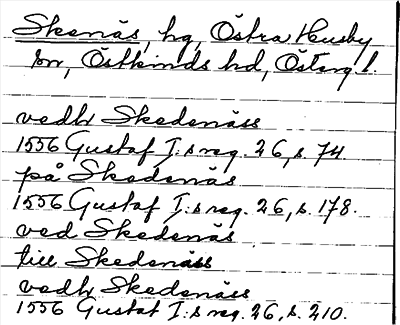 Skenäs, hg, Östra Husby
sn, Östkinds hd, Östergl.
vedh Skedenäss
1556 Gustaf I:s reg. 26, s. 74
på Skedenäs
1556 Gustaf I:s reg. 26, s. 178.
ved Skedenäs
till Skedenäss
vedh Skedenäss
1556 Gustaf I:s reg. 26, s. 210.